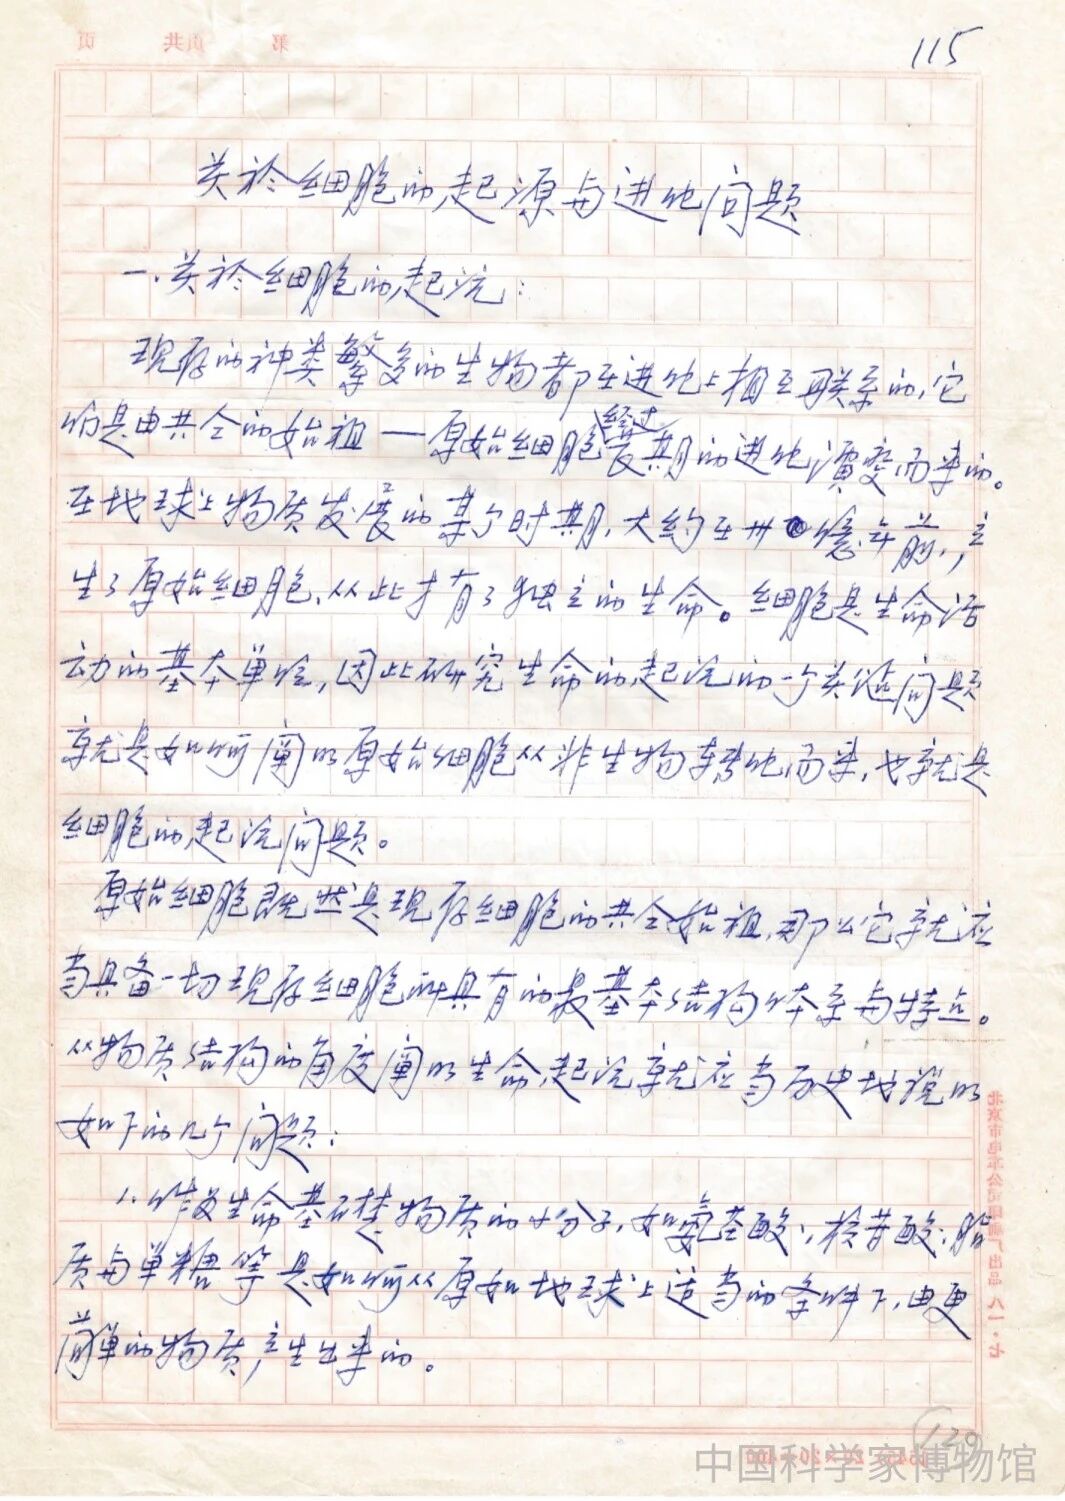 115
关於细胞的起源与进化问题
一、关於细胞的起沅：
现存的种类繁多的生物都在进化上相互联系的，它
们是由共仝的始祖——原始细胞经过长期的进化演变而来的。
在地球上物质发展的某个时期，大约在卅 億年前，产
生了原始细胞，从此才有了独立的生命。细胞是生命活
动的基本单位，因此研究生命的起沅的一个关键问题
就是如何阐明原始细胞从非生物转化而来，也就是
细胞的起沅问题。
原始细胞既然是现存细胞的共仝始祖，那么它就应
当具备一切现存细胞所具有的最基本结构体系与特点。
从物质结构的角度阐明生命起沅就应当历史地说明
如下的几个问题：
1. 作为生命基础物质的小分子，如氨基酸、核苷酸、脂
质与单糖等是如何从原始地球上适当的条件下，由更
简单的物质，产生出来的。
120
第 页共 页
北京市电车公司印刷厂出品 八一·七
中国科学家博物馆